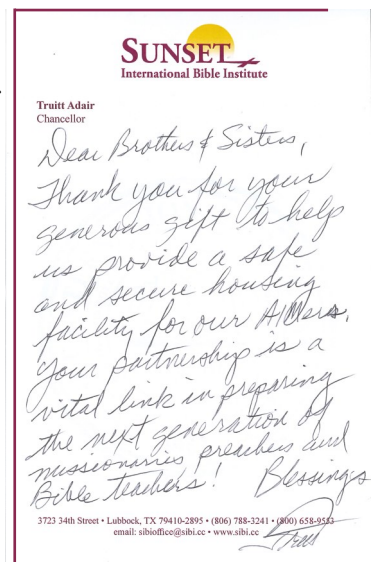 SUNSET
International Bible Institute
Truitt Adair
Chancellor
Dear Brothers & Sisters,
Thank you for your
generous gift to help
us provide a safe
and secure housing
facility for our AIMers.
Your partnership is a
vital link in preparing
the next generation of
missionaries preachers and
Bible teachers! Blessings
3723 34th Street • Lubbock, TX 79410-2895 • (806) 788-3241 • (800) 658-9553
email: sibioffice@sibi.cc • www.sibi.cc
Truitt